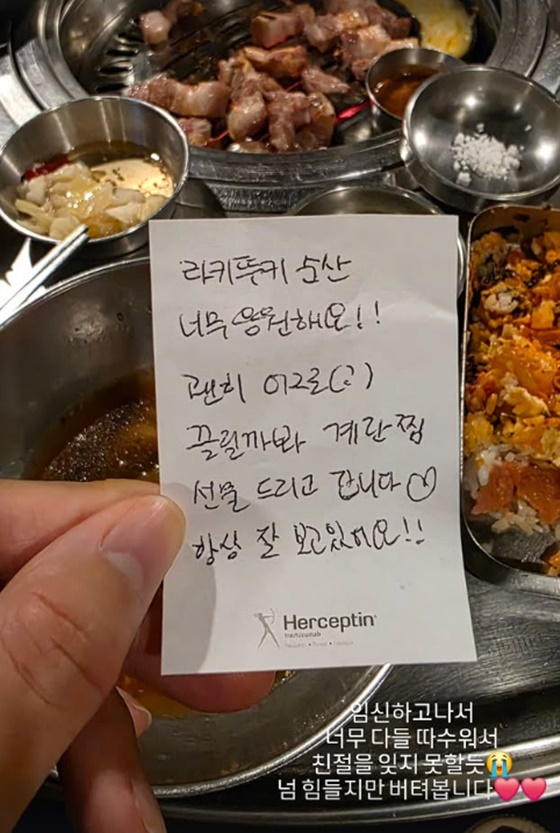 라키뚱키 순산
너무 응원해요!!
괜히 어그로(?)
끌릴까봐 계란찜
선물 드리고 갑니다♡
항상 잘 보고있어요!!
Herceptin®
trastuzumab
임신하고나서
너무 다들 따수워서
친절을 잊지 못할듯😭
넘 힘들지만 버텨봅니다💗💗